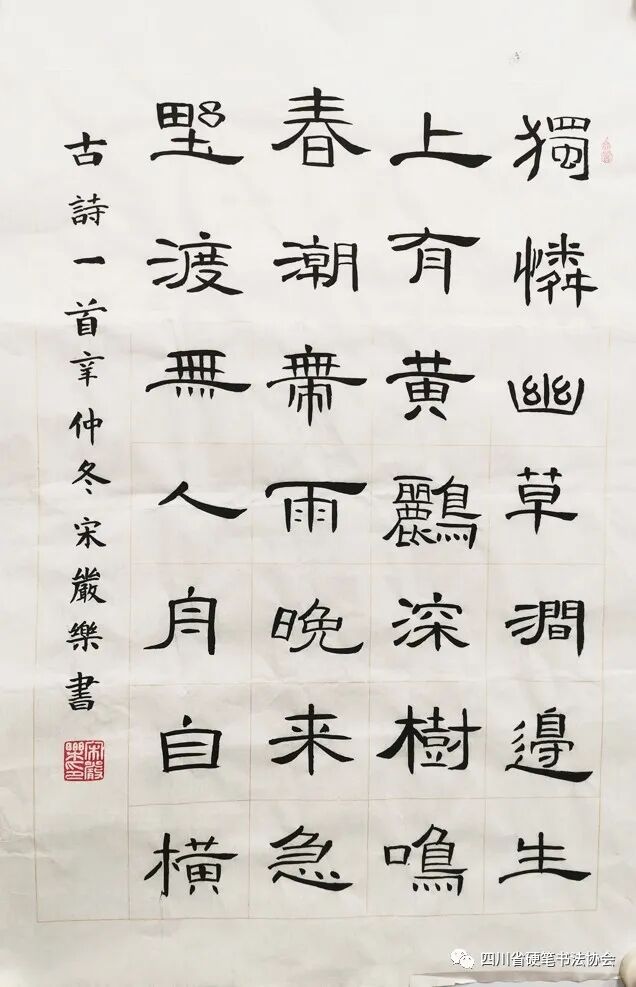 獨憐幽草澗邉生
上有黄鸝深樹鳴
春潮帶雨晚来急
野渡無人舟自橫
古詩一首辛仲冬宋嚴樂書
宋嚴樂印
四川省硬笔书法协会